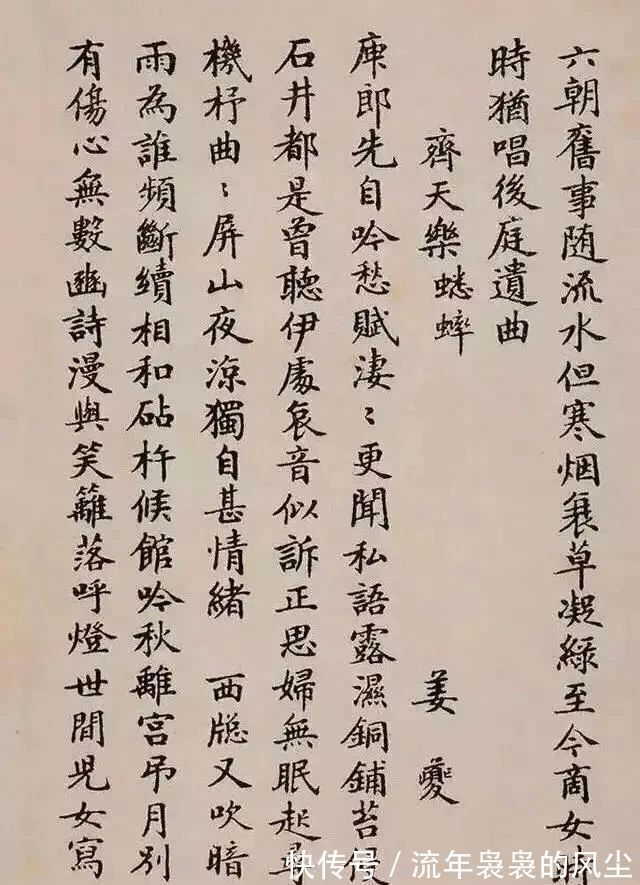 六朝舊事随流水但寒烟衰草凝綠至今商女
時猶唱後庭遺曲
齊天樂蟋蟀 姜夔
庾郎先自吟愁賦淒〻更聞私語露濕銅鋪苔
石井都是曾聽伊處哀音似訴正思婦無眠起尋
機杼曲〻屏山夜涼獨自甚情緒 西牕又吹暗
雨為誰頻斷續相和砧杵候館吟秋離宮吊月別
有傷心無數豳詩漫與笑籬落呼燈世間兒女寫
快传号 / 流年袅袅的风尘